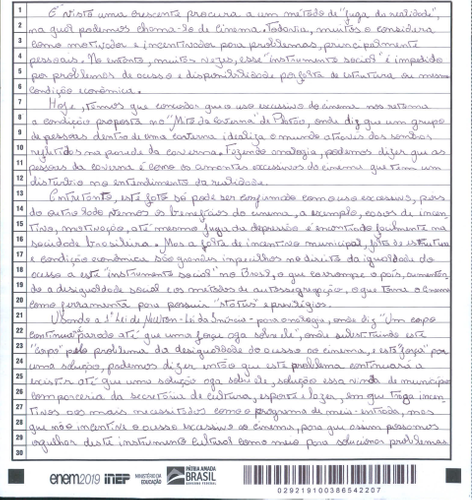 1
É visto uma crescente procura a um método de "fuga da realidade",
2
na qual podemos chama-lo de cinema. Todavia, muitos o considera
3
como motivador e incentivador para problemas, principalmente
4
pessoais. No entanto, muitas vezes, esse "instrumento social" é impedido
5
por problemas de acesso e disponibilidade por falta de estrutura ou mesmo
6
condição econômica.
7
Hoje, temos que concordar que o uso excessivo do cinema nos retoma
8
a condição proposta no "Mito da Caverna" de Platão, onde diz que um grupo
9
de pessoas dentro de uma caverna idealiza o mundo através das sombras
10
refletidas na parede da caverna. Fazendo analogia, podemos dizer que as
11
pessoas da caverna é como os amantes excessivos do cinema que tem um
12
distúrbio no entendimento da realidade.
13
Entretanto, este fato só pode ser confirmado com o uso excessivo, pois
14
do outro lado vemos os benefícios do cinema, a exemplo, casos de incen-
15
tivo, motivação, até mesmo fuga da depressão é encontrado facilmente na
16
sociedade brasileira. Mas a falta de incentivo municipal, falta de estrutura
17
e condição econômica são grandes impecilhos no direito da igualdade do
18
acesso a este "instrumento social" no Brasil, o que corrompe o país, aumentan-
19
do a desigualdade social e os métodos de autossegregação, o que torna o cinema
20
como ferramenta para possuir "status" e privilégios.
21
Usando a 1ª Lei de Newton - Lei da Inércia - para analogia, onde diz "Um corpo
22
continua parado até que uma força aja sobre ele", onde substituindo este
23
"corpo" pelo problema da desigualdade do acesso ao cinema, e esta "força" por
24
uma solução, podemos dizer então que este problema continuará a
25
existir até que uma solução aja sobre ele, solução essa vinda do município
26
com parceria da secretária de cultura, esporte e lazer, em que traga incen-
27
tivos aos mais necessitados como o programa de meia-entrada, mas
28
que não incentive o acesso excessivo ao cinema, para que assim possamos
29
orgulhar deste instrumento cultural como meio para solucionar problemas.
30
enem2019 inep MINISTÉRIO DA EDUCAÇÃO PÁTRIA AMADA BRASIL GOVERNO FEDERAL
029219100386542207